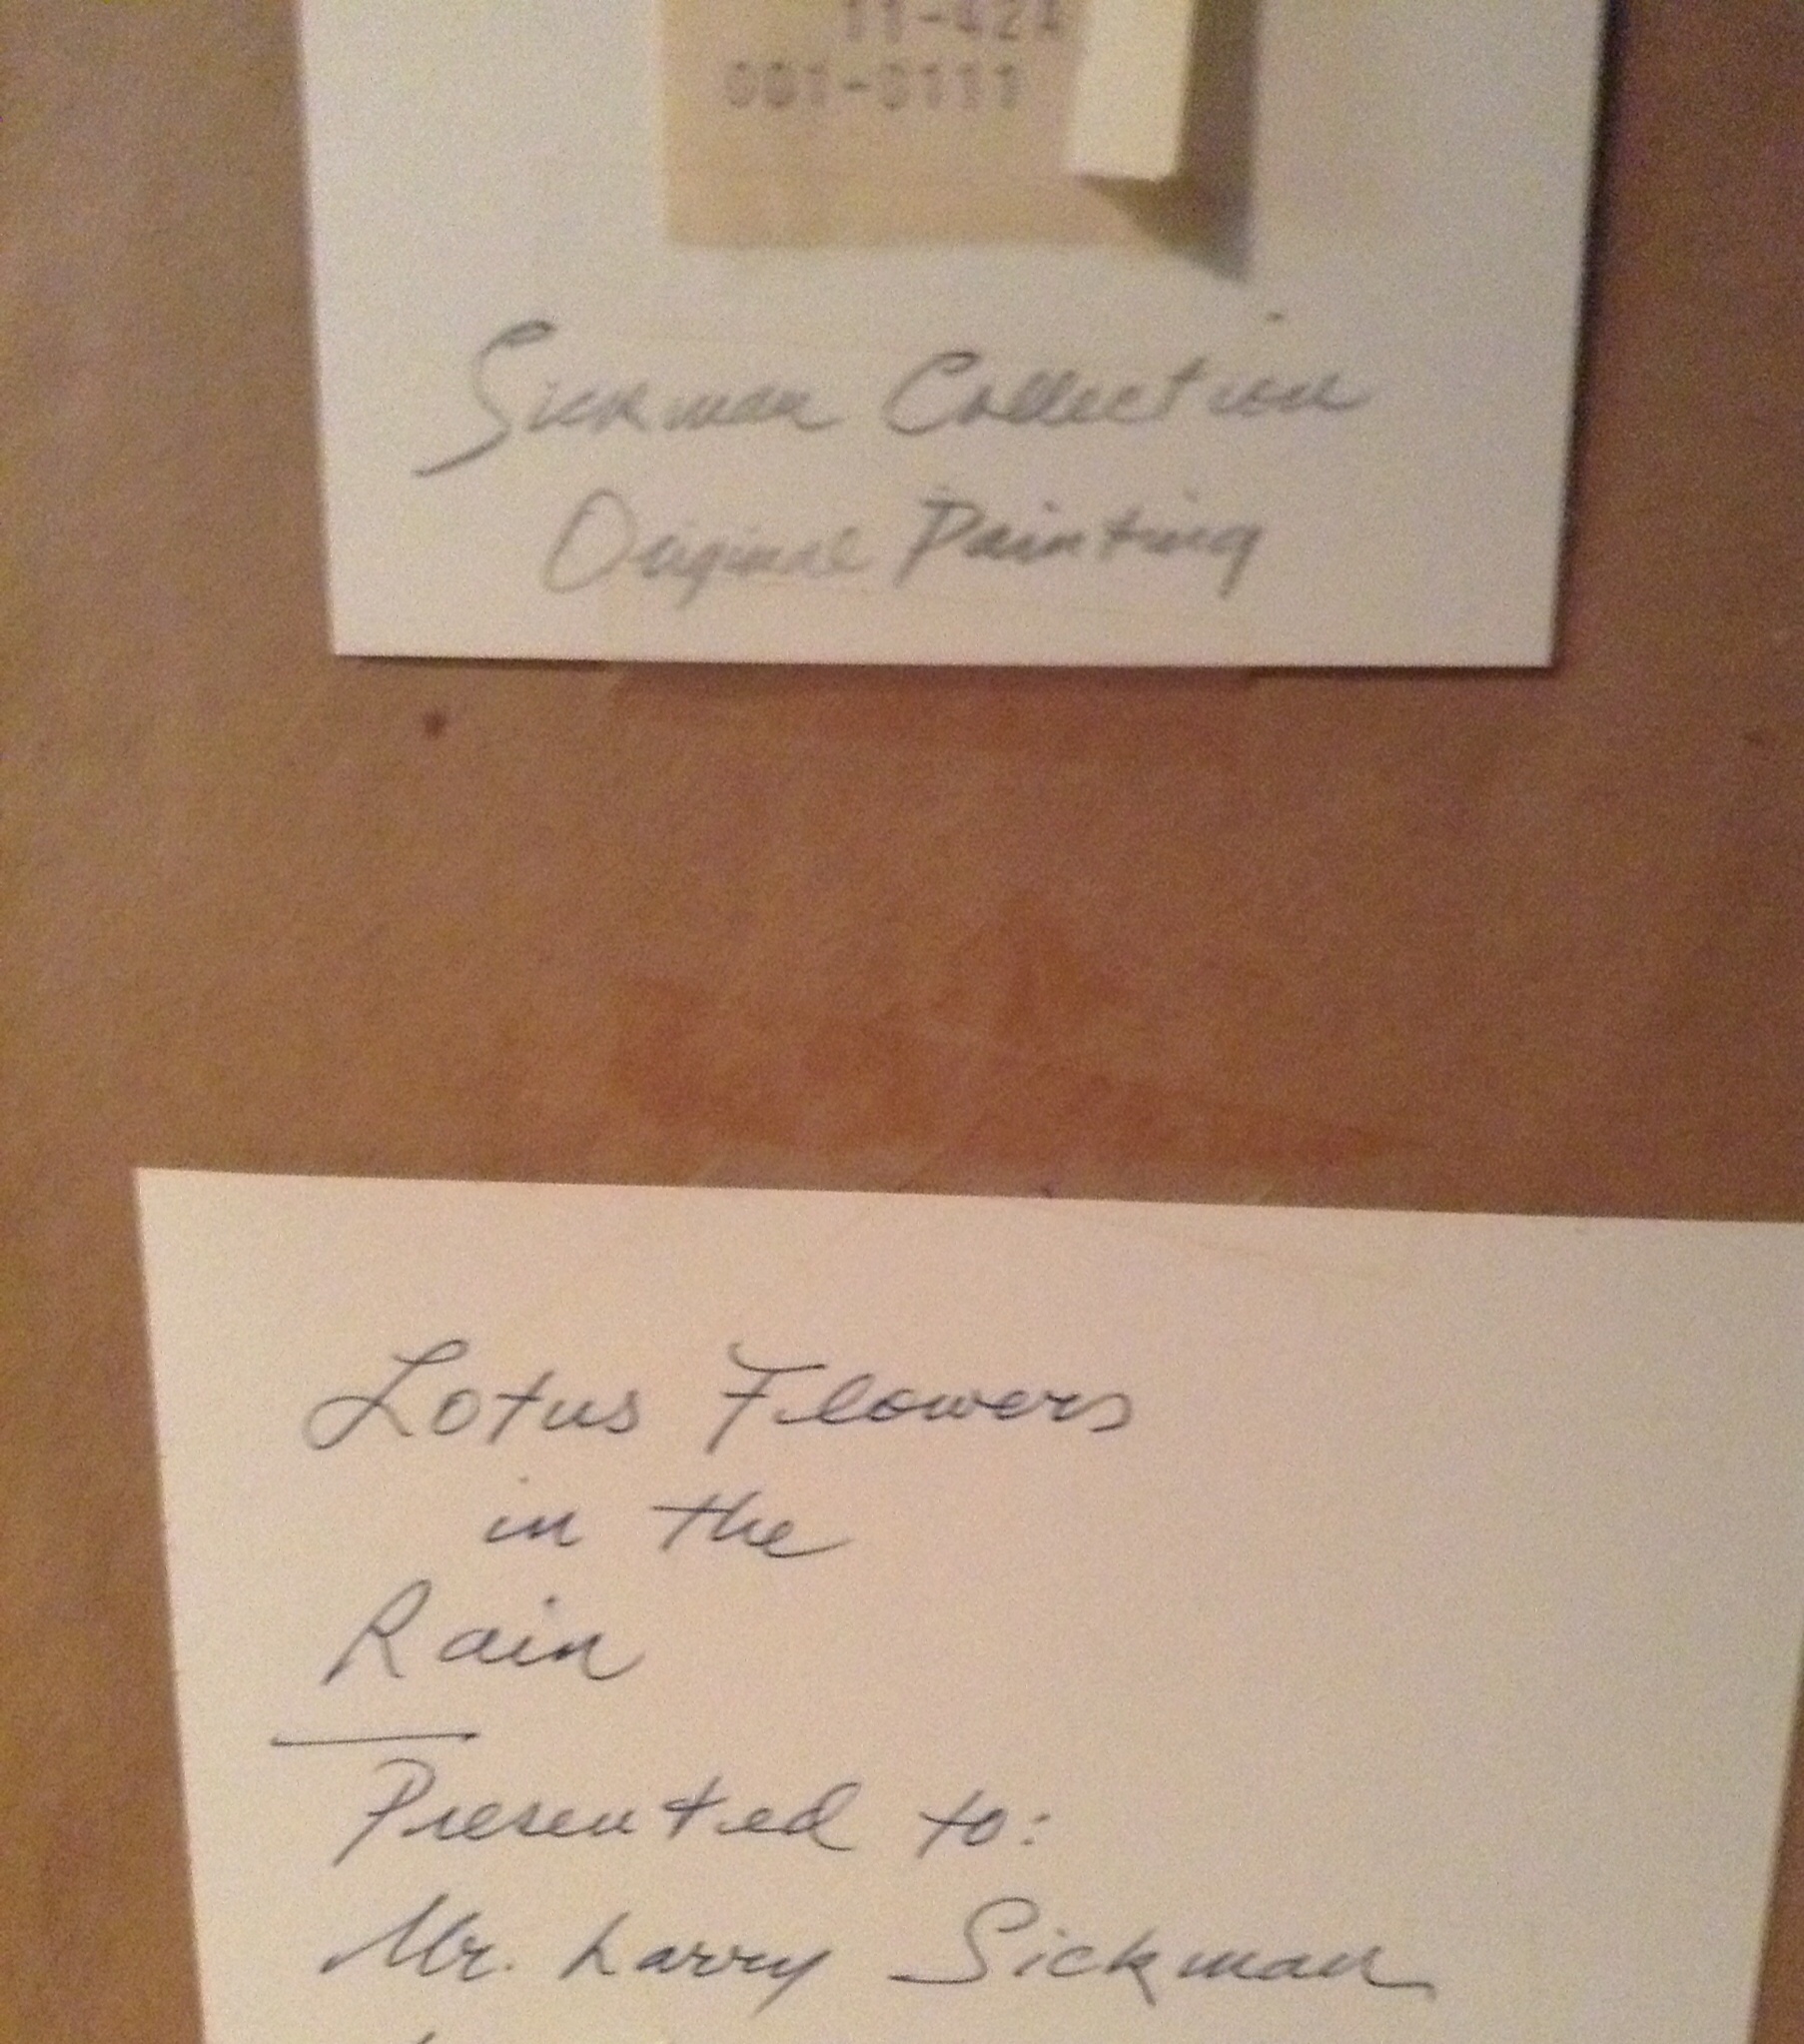 11-424
001-0111
Sickman Collection
Original Painting
Lotus Flowers
in the
Rain
Presented to:
Mr. Larry Sickman